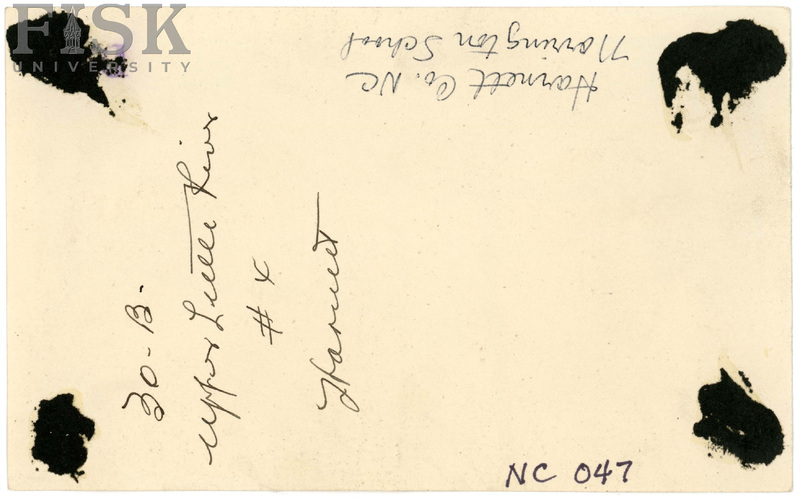 FISK
UNIVERSITY
Harnett Co. NC
Norington School
30-B.
Upper Little River
# 4
Harnett
NC 047